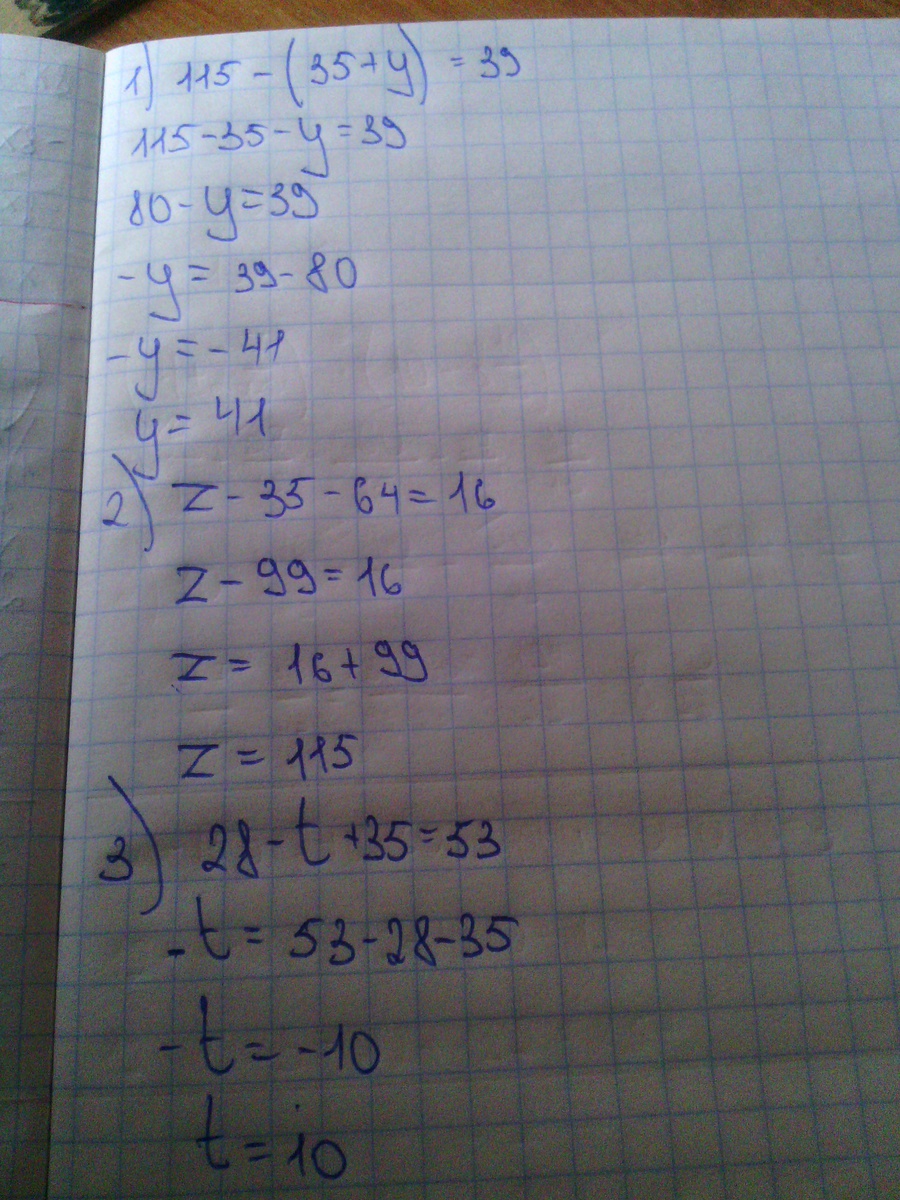 1) 115 - (35+y) = 39
115-35-y=39
80-y=39
-y= 39-80
-y=-41
y= 41
2) z - 35 - 64= 16
z - 99=16
z = 16+99
z = 115
3) 28-t+35=53
-t= 53-28-35
-t=-10
t=10